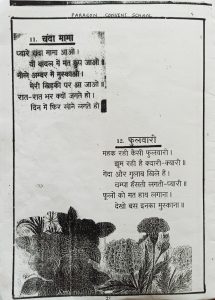 PARAGON CONVENT SCHOOL
11. चंदा मामा
प्यारे चंदा मामा आओ।
यों बादल में मत छुप जाओ॥
नीले अम्बर में मुस्काओ।
मेरी खिड़की पर आ जाओ॥
रात-रात भर क्यों जगते हो।
दिन में फिर सोने लगते हो॥
12. फुलवारी
महक रही कैसी फुलवारी।
झूम रही है क्यारी-क्यारी॥
गेंदा और गुलाब खिले हैं।
चम्पा हँसती लगती प्यारी॥
फूलों को मत हाथ लगाना।
देखो बस इनका मुस्काना॥